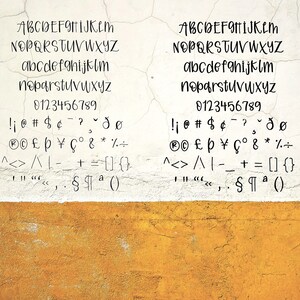 ABCDEFGHIJKLM
NOPQRSTUVWXYZ
abcdefghijklm
nopqrstuvwxyz
0123456789
! ¡ @ # $ ¢ ¨ ? ¸ ˘ ð ø
® © £ þ ¥ ç ° 8 * % ÷
^ < > / \ | - _ + = [ ] { }
' " “ ‘ , . § ¶ ª ( )
ABCDEFGHIJKLM
NOPQRSTUVWXYZ
abcdefghijklm
nopqrstuvwxyz
0123456789
! ¡ @ # $ ¢ ¨ ? ¸ ˘ ð ø
® © £ þ ¥ ç ° 8 * % ÷
^ < > / \ | - _ + = [ ] { }
' " “ ‘ , . § ¶ ª ( )